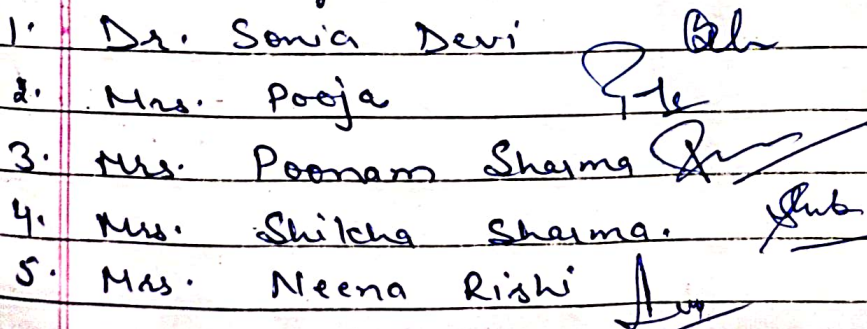 1. Dr. Sonia Devi
2. Mrs. Pooja
3. Mrs. Poonam Sharma
4. Mrs. Shikha Sharma.
5. Mrs. Neena Rishi